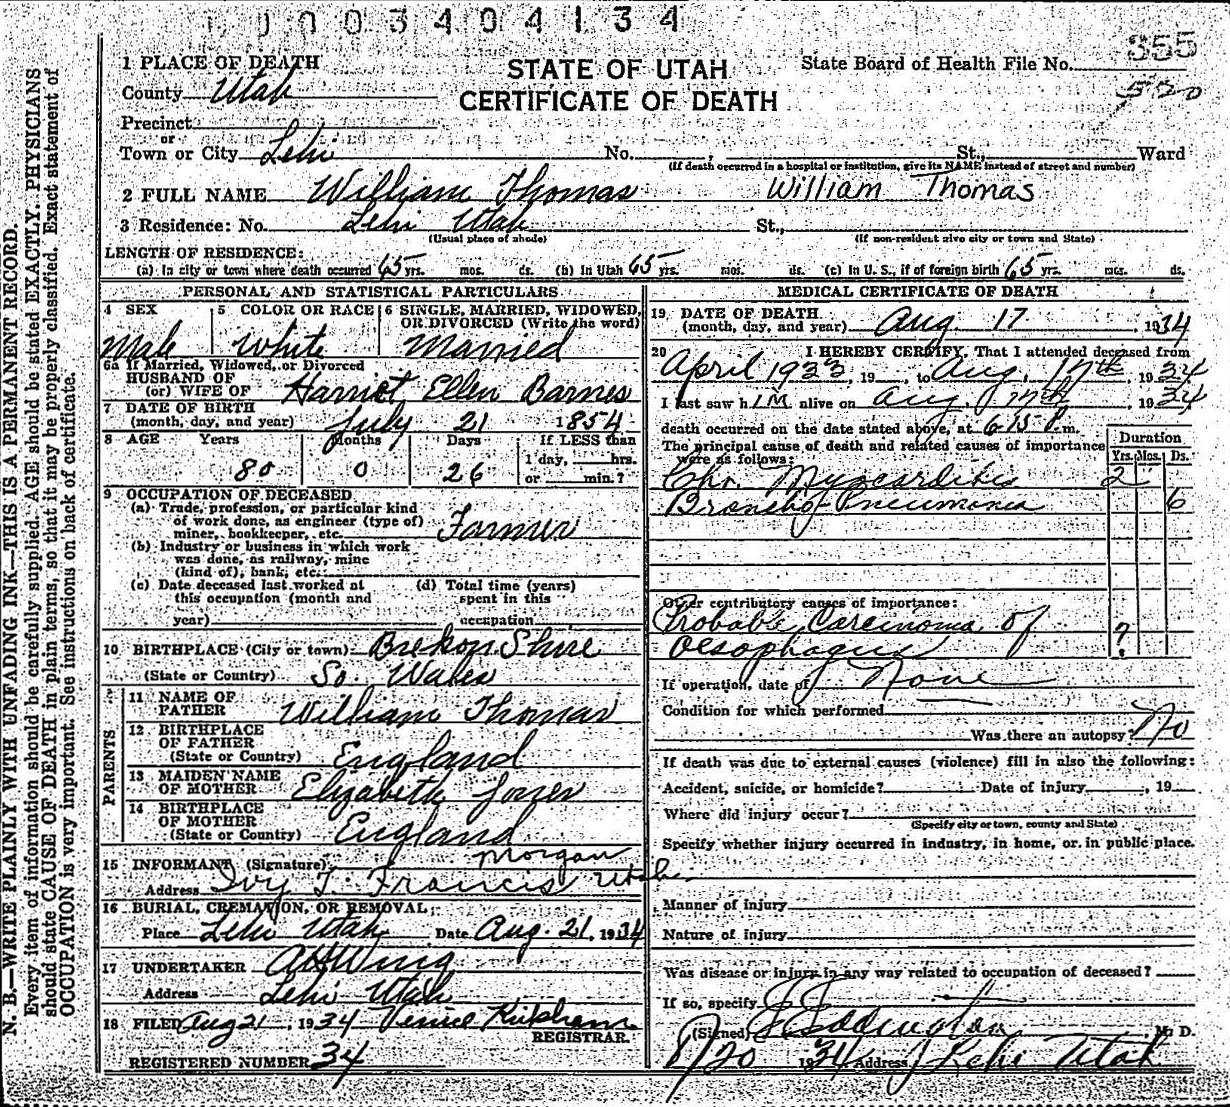 1003404134
355
520
STATE OF UTAH
CERTIFICATE OF DEATH
State Board of Health File No.
1 PLACE OF DEATH
County Utah
Precinct
or
Town or City Lehi No. , St., Ward
(If death occurred in a hospital or institution, give its NAME instead of street and number)
2 FULL NAME William Thomas William Thomas
3 Residence: No. Lehi Utah St.,
(Usual place of abode) (If non-resident give city or town and State)
LENGTH OF RESIDENCE:
(a) In city or town where death occurred 65 yrs. mos. ds. (b) In Utah 65 yrs. mos. ds. (c) In U. S., if of foreign birth 65 yrs. mos. ds.
PERSONAL AND STATISTICAL PARTICULARS
4 SEX
Male
5 COLOR OR RACE
White
6 SINGLE, MARRIED, WIDOWED,
OR DIVORCED (Write the word)
Married
6a If Married, Widowed, or Divorced
HUSBAND OF
(or) WIFE OF Harriet Ellen Barnes
7 DATE OF BIRTH
(month, day, and year) July 21 1854
8 AGE Years Months Days If LESS than
1 day, hrs.
80 0 26 or min.?
9 OCCUPATION OF DECEASED
(a) Trade, profession, or particular kind
of work done, as engineer (type of)
miner, bookkeeper, etc. Farmer
(b) Industry or business in which work
was done, as railway, mine
(kind of), bank, etc.
(c) Date deceased last worked at
this occupation (month and
year)
(d) Total time (years)
spent in this
occupation
10 BIRTHPLACE (City or town) Brekon Shire
(State or Country) So. Wales
PARENTS
11 NAME OF
FATHER William Thomas
12 BIRTHPLACE
OF FATHER
(State or Country) England
13 MAIDEN NAME
OF MOTHER Elizabeth Jones
14 BIRTHPLACE
OF MOTHER
(State or Country) England
15 INFORMANT (Signature) Morgan
Address Ivy T. Francis Utah
16 BURIAL, CREMATION, OR REMOVAL:
Place Lehi Utah Date Aug. 21, 1934
17 UNDERTAKER A H Wing
Address Lehi Utah
18 FILED Aug 21, 1934
REGISTRAR.
REGISTERED NUMBER 34
MEDICAL CERTIFICATE OF DEATH
19 DATE OF DEATH
(month, day, and year) Aug. 17, 1934
20 I HEREBY CERTIFY, That I attended deceased from
April 1933, 19 , to Aug. 17th, 1934
I last saw him alive on Aug. 17th, 1934
death occurred on the date stated above, at 6-15 P.m.
The principal cause of death and related causes of importance
were as follows:
Duration
Yrs. Mos. Ds.
Chr. Myocarditis 2
Broncho-Pneumonia 6
Other contributory causes of importance:
Probable Carcinoma of
Oesophagus ?
If operation, date of None
Condition for which performed
Was there an autopsy? No
If death was due to external causes (violence) fill in also the following:
Accident, suicide, or homicide? Date of injury , 19
Where did injury occur?
(Specify city or town, county and State)
Specify whether injury occurred in industry, in home, or in public place.
Manner of injury
Nature of injury
Was disease or injury in any way related to occupation of deceased?
If so, specify
(Signed) Eddington M. D.
8/20 1934 Address Lehi Utah
N. B.—WRITE PLAINLY WITH UNFADING INK—THIS IS A PERMANENT RECORD.
Every item of information should be carefully supplied. AGE should be stated EXACTLY. PHYSICIANS
should state CAUSE OF DEATH in plain terms, so that it may be properly classified. Exact statement of
OCCUPATION is very important. See instructions on back of certificate.